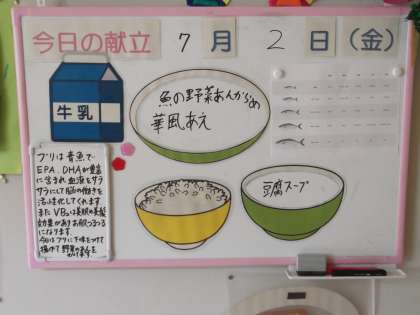 今日の献立 7月2日(金)
牛乳
魚の野菜あんからめ
華風あえ
豆腐スープ
ブリは青魚で
EPA、DHAが豊富
に含まれ血液をサラ
サラにして脳の働きを
活性化してくれます。
また VB₂は美肌の美髪
効果がありお肌つるつる
になります。
今日はブリに下味をつけて
揚げて野菜のあんを
かけてます。